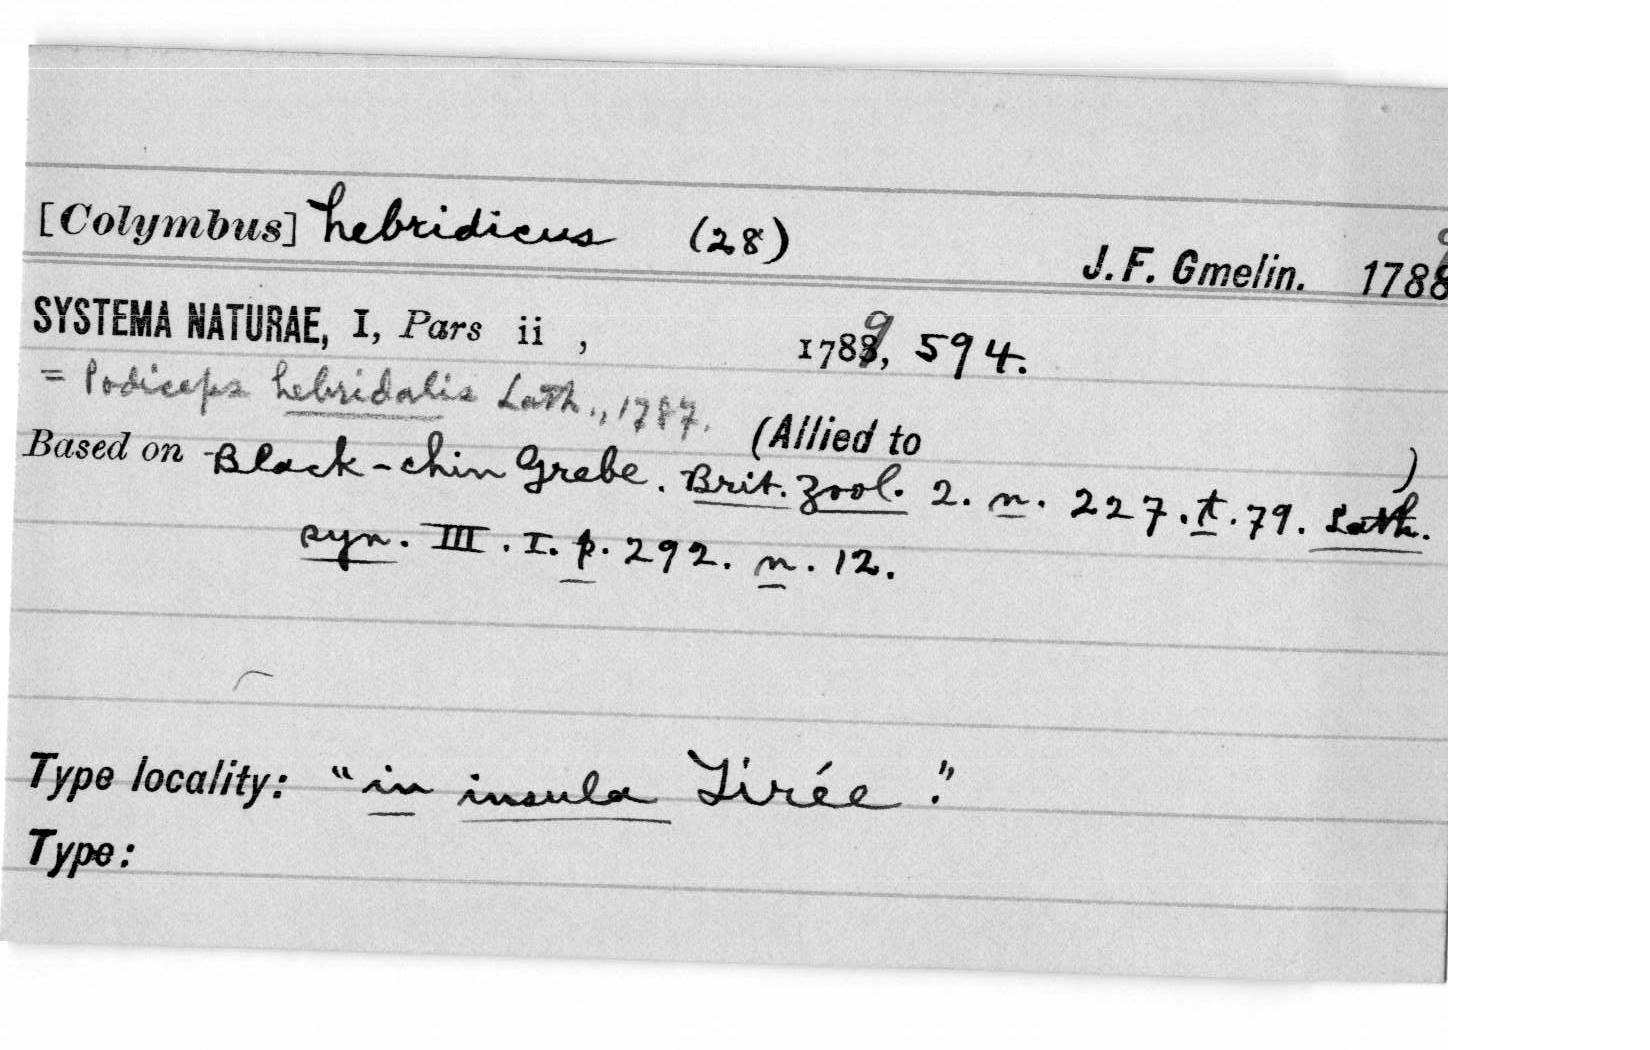 [Colymbus] hebridicus (28) J. F. Gmelin. 1789
SYSTEMA NATURAE, I, Pars ii , 1789, 594.
= Podiceps hebridalis Lath., 1787.
(Allied to )
Based on Black-chin Grebe. Brit. Zool. 2. n. 227. t. 79. Lath.
syn. III. I. p. 292. n. 12.
Type locality: "in insula Tirée."
Type: